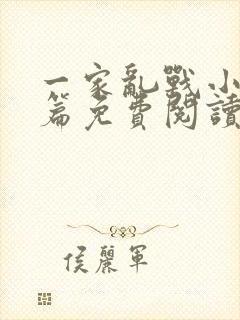 一家亂戰小
篇免費閱讀
侯麗軍